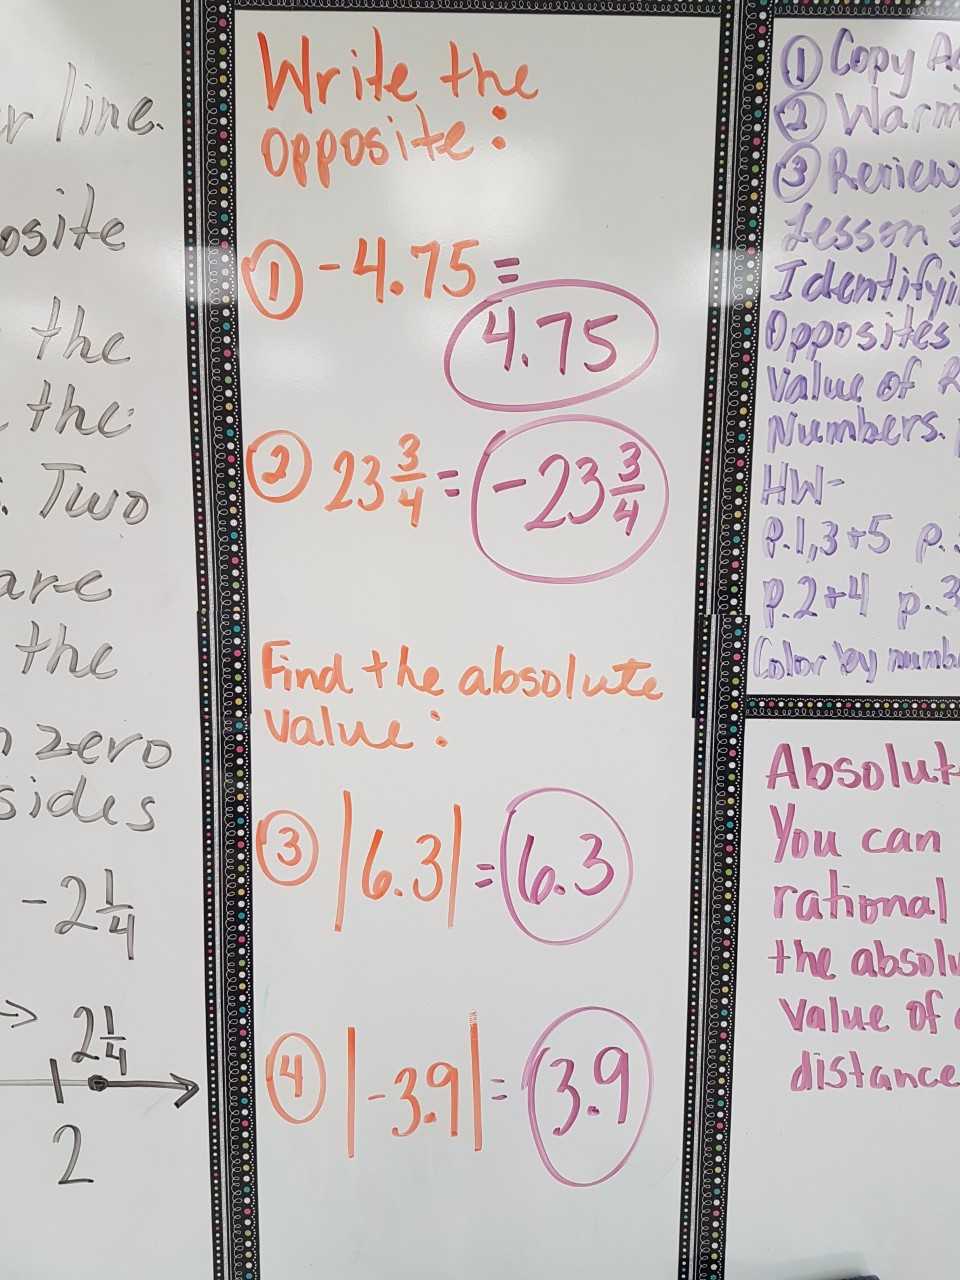 line.
osite
the
the
. Two
are
the
zero
sides
-2 1/4
2 1/4
2
Write the
opposite:
① -4.75 =
4.75
② 23 3/4 = -23 3/4
Find the absolute
value:
③ |6.3| = 6.3
④ |-3.9| = 3.9
① Copy
② Warm
③ Review
Lesson 3
Identifyi
Opposites
Value of R
Numbers.
HW-
p.1,3+5 p.
p.2+4 p.3
Color by numb
Absolut
You can
rational
the absolu
value of
distance